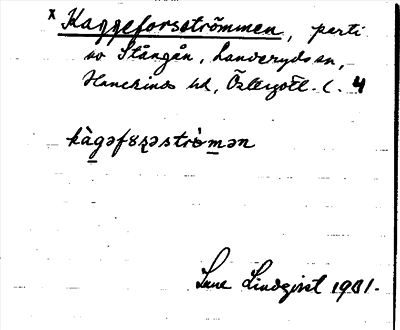 x Kaggeforsströmmen, parti
av Stångån, Landeryds sn,
Hanekinds hd, Östergötl. l. 4
kàgəfʚʀəstrò̀mən
Sune Lindqvist 1901.